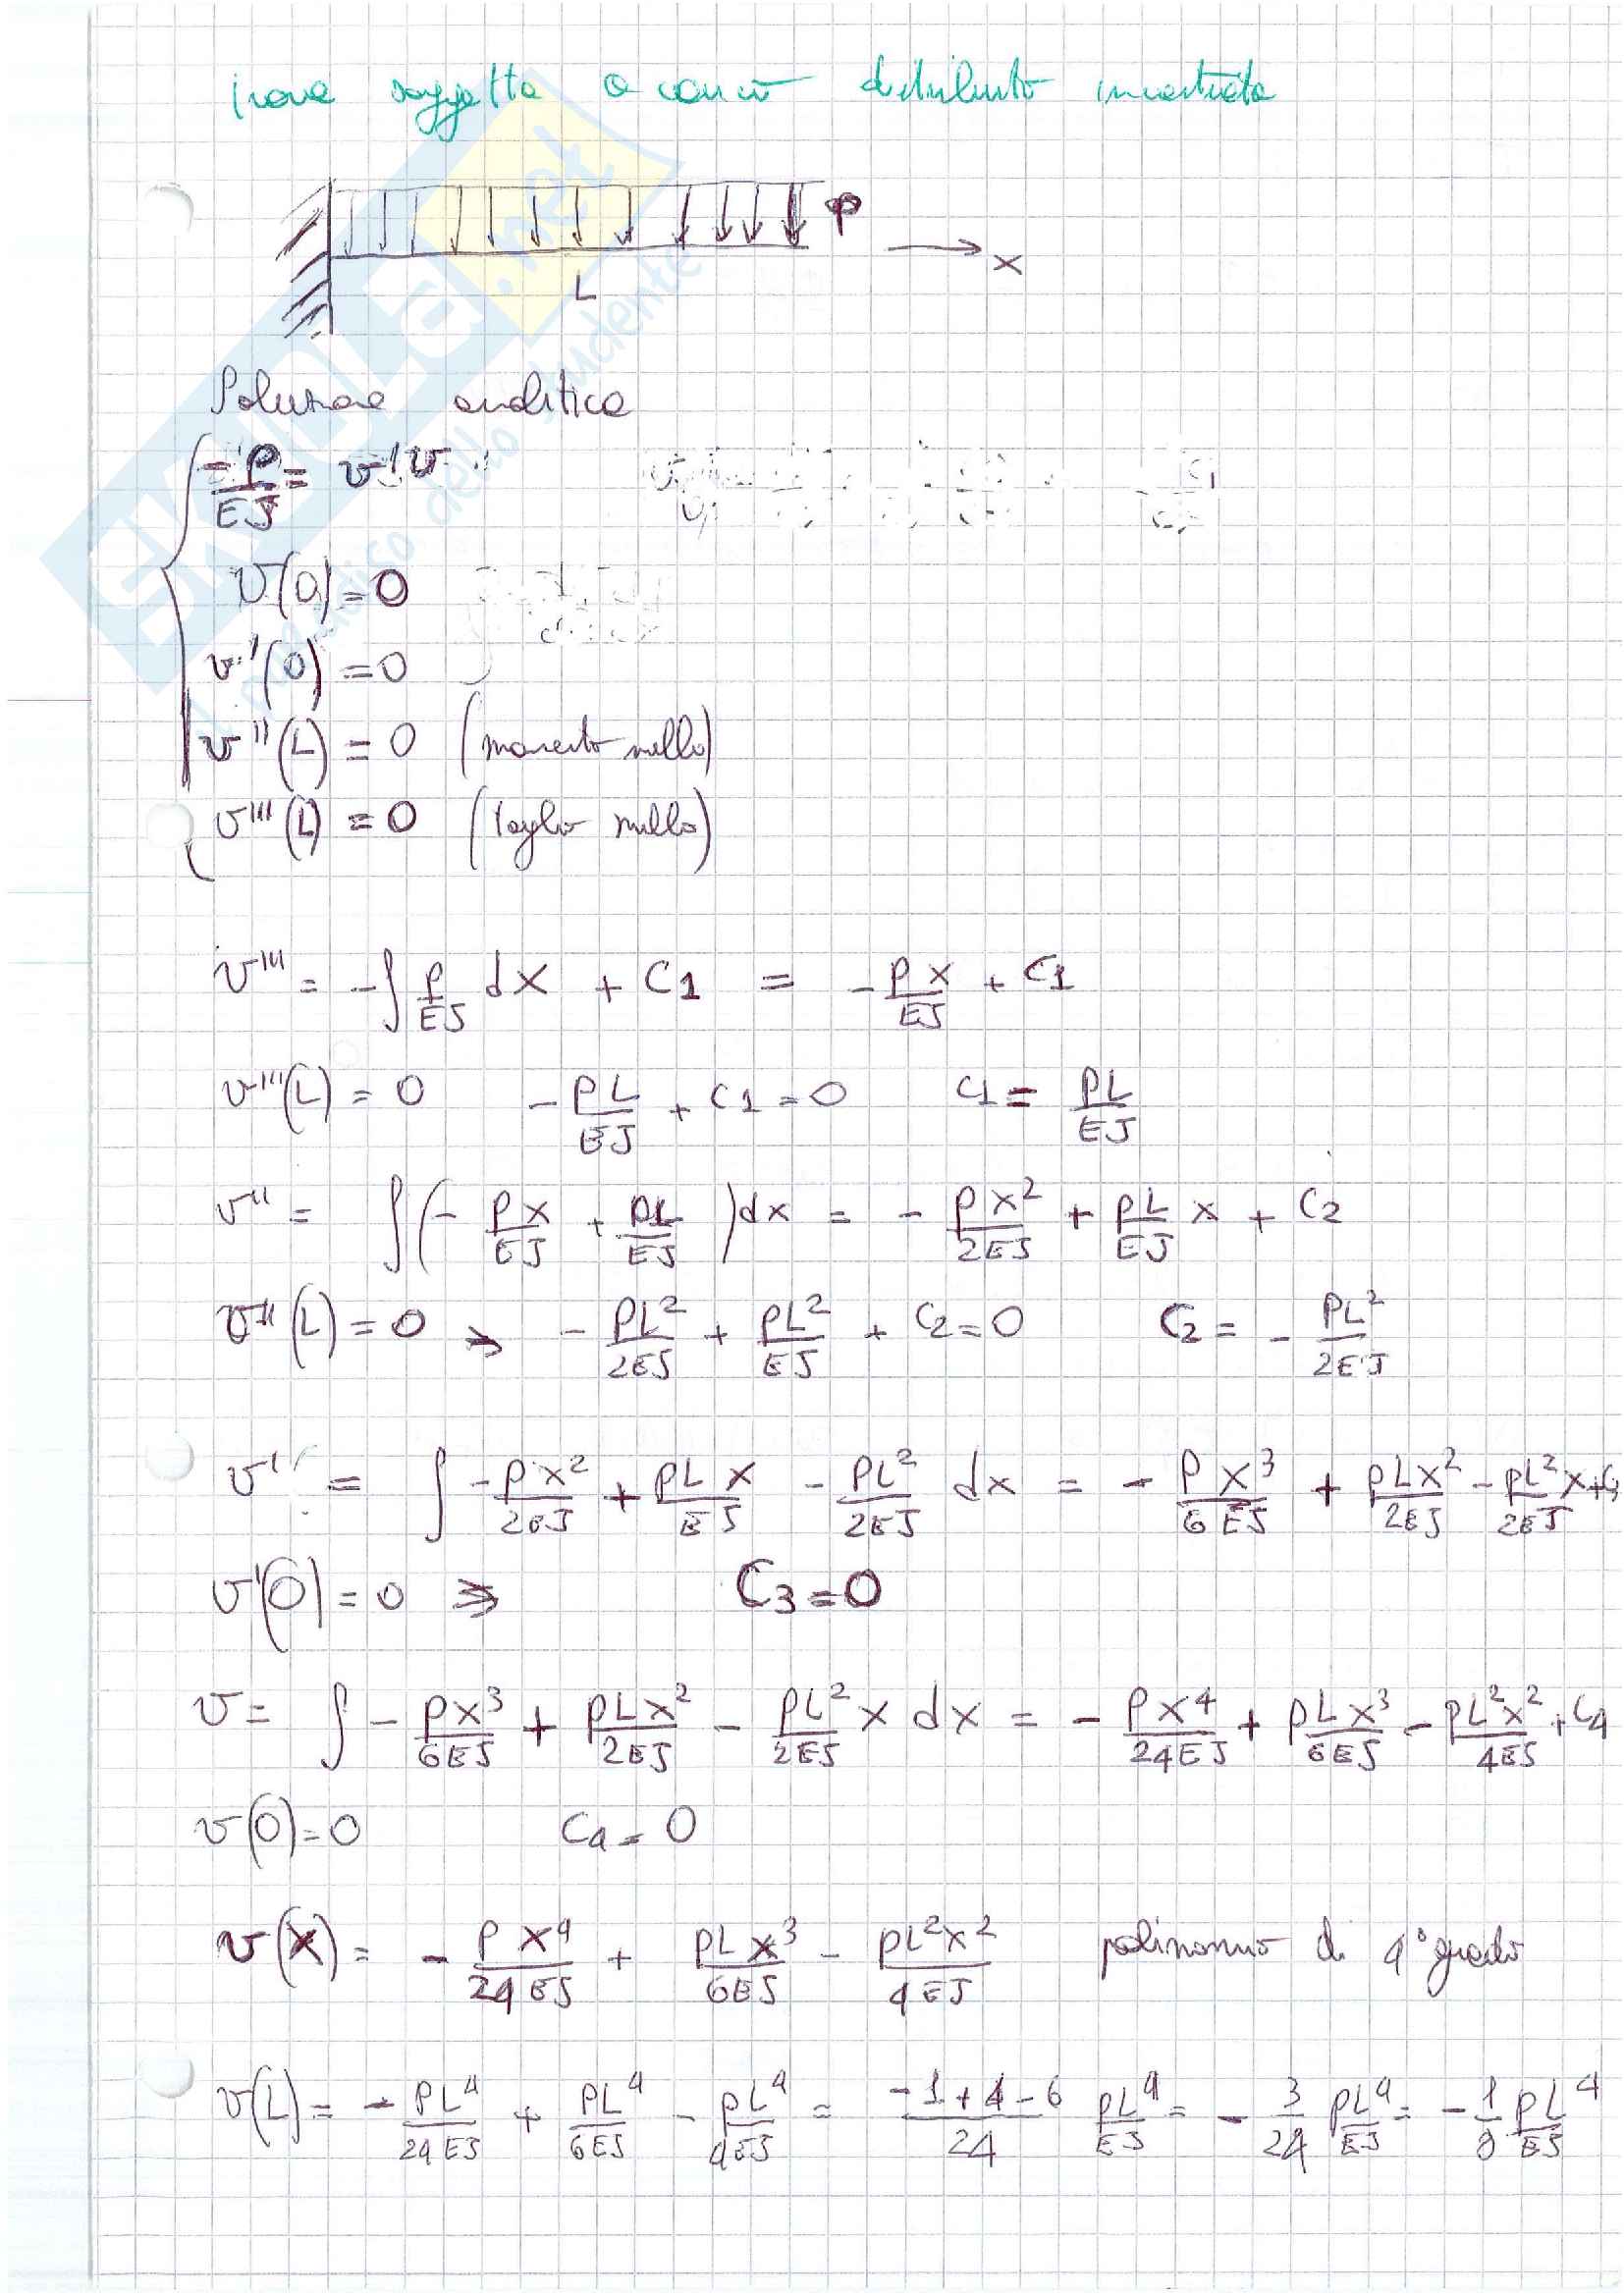 trave soggetta a carico distribuito incastrata
p
x
L
Soluzione analitica
-p/EJ = v^IV
v(0)=0
v'(0)=0
v''(L)=0 (momento nullo)
v'''(L)=0 (taglio nullo)
v''' = -∫ p/EJ dx + C1 = -px/EJ + C1
v'''(L)=0 -pL/EJ + C1=0 C1= pL/EJ
v'' = ∫(-px/EJ + pL/EJ)dx = -px²/2EJ + pL/EJ x + C2
v''(L)=0 → -pL²/2EJ + pL²/EJ + C2=0 C2= -pL²/2EJ
v' = ∫ -px²/2EJ + pLx/EJ - pL²/2EJ dx = -px³/6EJ + pLx²/2EJ - pL²x/2EJ + C3
v'(0)=0 ⇒ C3=0
v= ∫ -px³/6EJ + pLx²/2EJ - pL²/2EJ x dx = -px⁴/24EJ + pLx³/6EJ - pL²x²/4EJ + C4
v(0)=0 C4=0
v(x)= -px⁴/24EJ + pLx³/6EJ - pL²x²/4EJ polinomio di 4° grado
v(L)= -pL⁴/24EJ + pL⁴/6EJ - pL⁴/4EJ = -1+4-6/24 pL⁴/EJ = -3/24 pL⁴/EJ = -1/8 pL⁴/EJ
SKUOLA.net
il paradiso dello studente